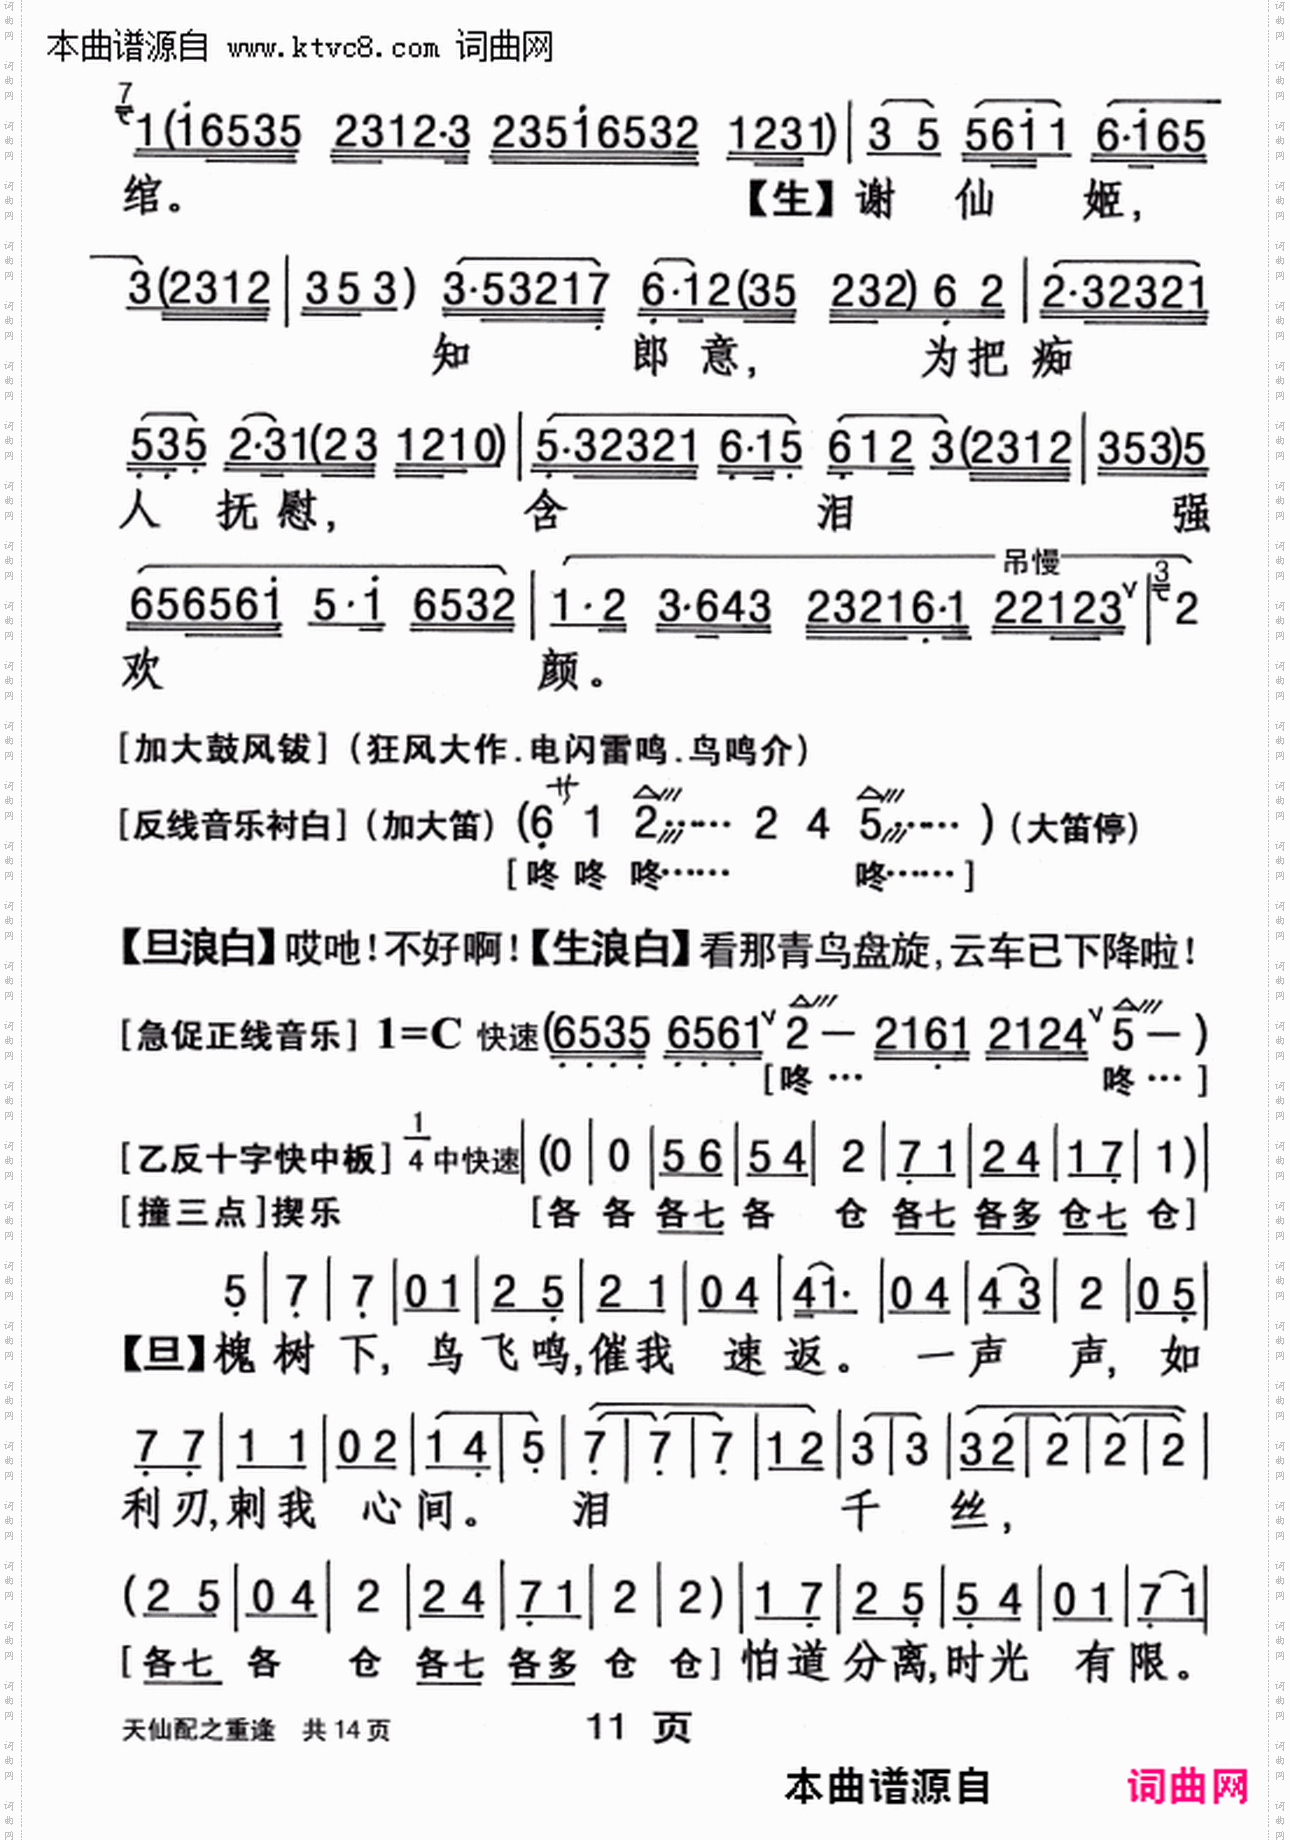 本曲谱源自 www.ktvc8.com 词曲网
7 1(i6535 2312·3 235i6532 1231) | 3 5 56i1 6·i65
绾。 【生】谢 仙 姬，
3(2312 | 353) 3·53217 6·12(35 232) 6 2 | 2·32321
知 郎 意， 为把 痴
535 2·31(23 1210) | 5·32321 6·15 612 3(2312 | 353)5
人 抚慰， 含 泪 强
656561 5·i 6532 | 1·2 3·643 23216·1 吊慢 22123 v | 3 2
欢 颜。
[加大鼓风钹]（狂风大作.电闪雷鸣.鸟鸣介）
[反线音乐衬白]（加大笛）(6 1 2…… 2 4 5……)（大笛停）
[咚 咚 咚…… 咚……]
【旦浪白】哎吔！不好啊！【生浪白】看那青鸟盘旋，云车已下降啦！
[急促正线音乐] 1=C 快速(6535 6561 v 2 — 2161 2124 v 5 — )
[咚 … 咚 … ]
[乙反十字快中板] 1/4 中快速 | (0 | 0 | 5 6 | 5 4 | 2 | 7 1 | 2 4 | 1 7 | 1) |
[撞三点]揳乐 [各 各 各七 各 仓 各七 各多 仓七 仓]
5 | 7 | 7 | 0 1 | 2 5 | 2 1 | 0 4 | 41· | 0 4 | 4 3 | 2 | 0 5 |
【旦】槐 树 下， 鸟 飞 鸣，催我 速 返。 一 声 声， 如
7 7 | 1 1 | 0 2 | 1 4 | 5 | 7 | 7 | 7 | 1 2 | 3 | 3 | 3 2 | 2 | 2 | 2 |
利刃，刺我 心间。 泪 千 丝，
(2 5 | 0 4 | 2 | 2 4 | 7 1 | 2 | 2) | 1 7 | 2 5 | 5 4 | 0 1 | 7 1 |
[各七 各 仓 各七 各多 仓 仓] 怕道 分离，时光 有限。
天仙配之重逢 共14页 11 页
本曲谱源自 词曲网